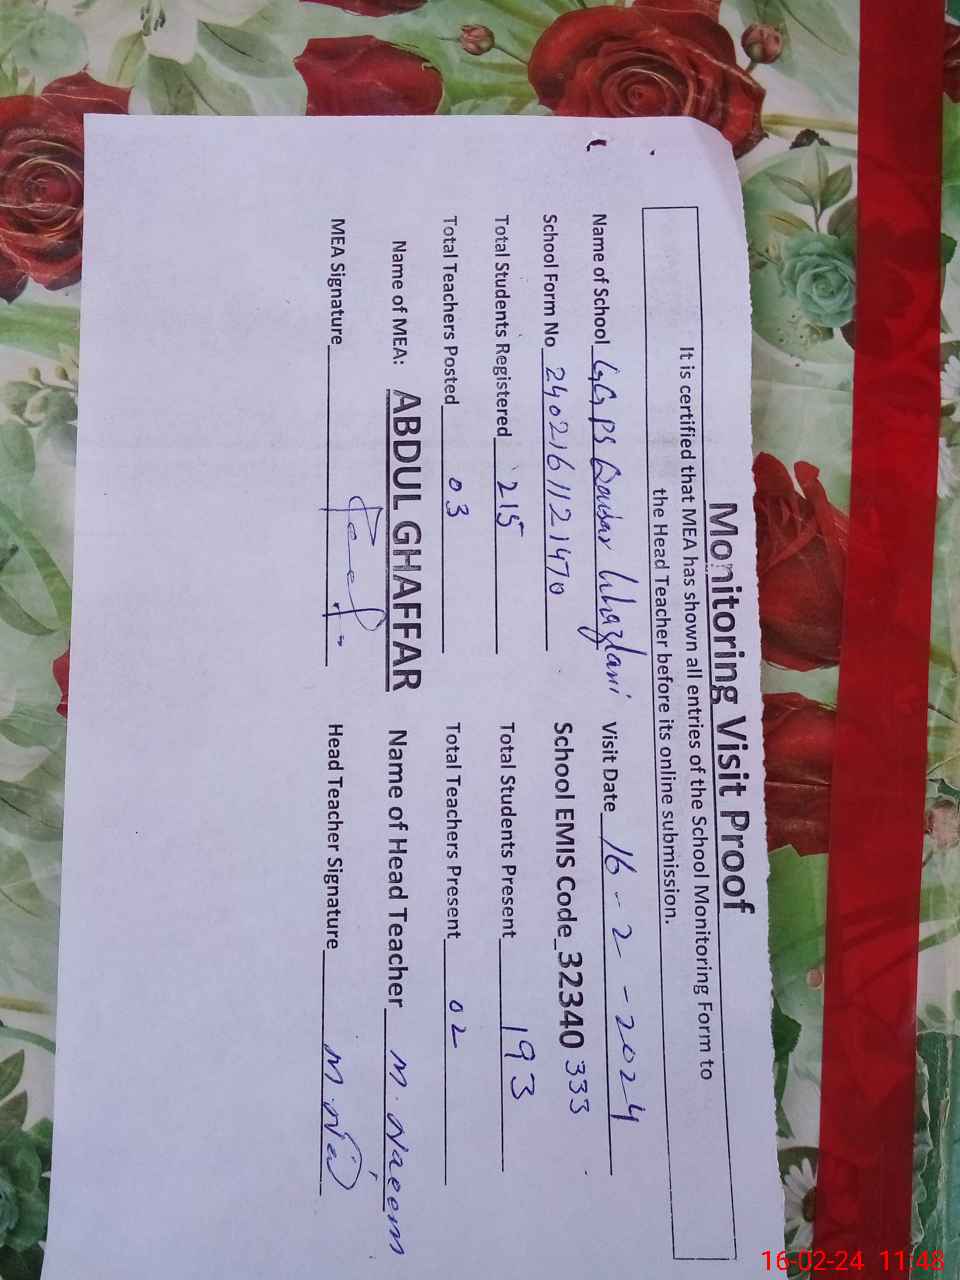 Monitoring Visit Proof
It is certified that MEA has shown all entries of the School Monitoring Form to
the Head Teacher before its online submission.
Name of School GGPS Visit Date 16-2-2024
School Form No 2402161121470 School EMIS Code_32340333
Total Students Registered 215 Total Students Present 193
Total Teachers Posted 03 Total Teachers Present 02
Name of MEA: ABDUL GHAFFAR Name of Head Teacher M. Naeem
MEA Signature Head Teacher Signature
16-02-24 11:48